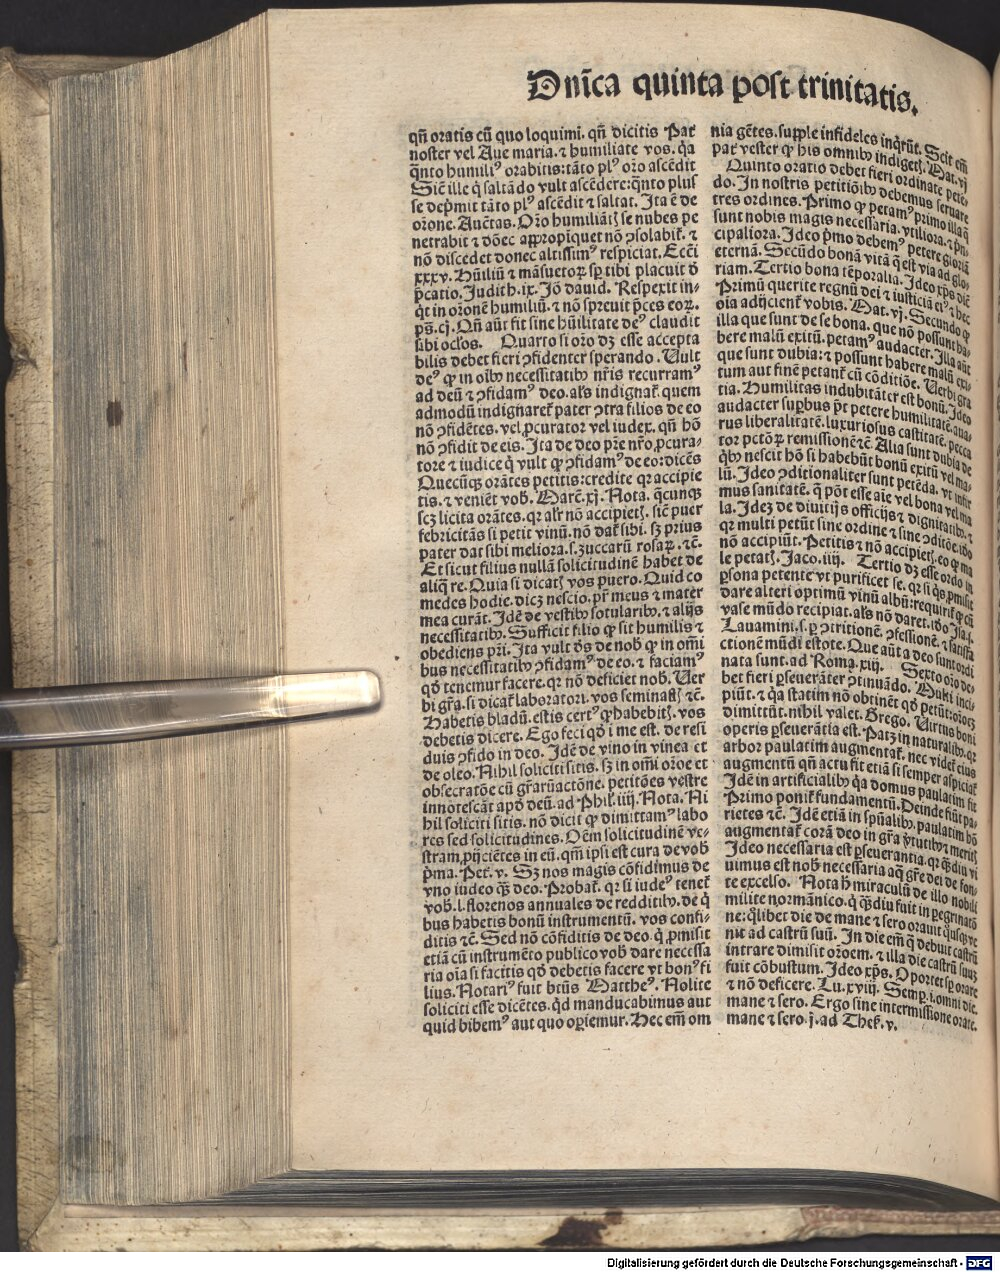 Dnīca quinta post trinitatis.
qñ oratis cū quo loquimi. qñ dicitis Pat̄
noster vel Aue maria. ⁊ humiliate vos. q̄a
q̄nto humiliꝰ orabitis: tāto plꝰ oro ascēdit
Sic̄ ille q̇ saltādo vult ascēdere: q̄nto plus
se dep̄mit tāto plꝰ ascēdit ⁊ saltat. Ita ē de
orōne. Auc̄tas. Oro humiliātꝭ se nubes pe
netrabit ⁊ donec appropiquet nō ↄsolabit̄. ⁊
nō discedet donec altissimꝰ respiciat. Ecc̄i
xxxv. Hūiliū ⁊ māsuetoꝝ sp̄ tibi placuit d̄
p̄catio. Judith. ix. Jō dauid. Respexit in-
q̇t in orōnem humiliū. ⁊ nō spreuit p̄ces eoꝝ.
ps̄. cj. Qñ aūt fit sine hūilitate deꝰ claudit
sibi oc̄los. Quarto si oro dꝫ esse accepta
bilis debet fieri ↄfidenter sperando. Uult
deꝰ ꝙ in oīb' necessitatib' nr̄is recurramꝰ
ad deū ⁊ ↄfidamꝰ deo. al's indignat̄. quem
admodū indignaret̄ pater ↄtra filios de eo
nō ↄfidētes. vel ꝓcurator vel iudex. qñ hō
nō ↄfidit de eis. Ita de deo pr̄e nr̄o ꝓcura-
tore ⁊ iudice q̇ vult ꝙ ↄfidamꝰ de eo: dicēs
Quecūqꝫ orātes petitis: credite qꝛ accipie
tis. ⁊ veniēt vob'. Marc̄. xj. Nota. q̄cunqꝫ
scꝫ licita orātes. qꝛ al'r nō accipietꝭ. sic̄ puer
febricitās si petit vinū. nō dat̄ sibi. sꝫ prius
pater dat sibi meliora. s. zuccarū rosaꝝ. ⁊c̄.
Et sicut filius nullā solicitudinē habet de
aliq̄ re. Quia si dicatꝭ vos puero. Quid co
medes hodie. dicꝫ nescio. pr̄ meus ⁊ mater
mea curāt. Idē de vestib' sotularib'. ⁊ alijs
necessitatib'. Sufficit filio ꝙ sit humilis ⁊
obediens pr̄i. Ita vult d̄s de nob' ꝙ in om̄i
bus necessitatib' ↄfidamꝰ de eo. ⁊ faciamꝰ
qd̄ tenemur facere. qꝛ nō deficiet nob'. Uer
bi gr̄a. si dicat̄ laboratori. vos seminastꝭ ⁊c̄.
Habetis bladū. estis certꝰ ꝙ habebitꝭ. vos
debetis dicere. Ego feci qd̄ i me est. de resi
duis ↄfido in deo. Idē de vino in vinea et
de oleo. Nihil soliciti sitis. sꝫ in om̄i oroe et
obsecratōe cū gr̄arū actōne. petitōes vestre
innotescāt apd̄ deū. ad Phil'. iiij. Nota. Ni
hil soliciti sitis. nō dicit ꝙ dimittamꝰ labo
res sed solicitudines. Oēm solicitudinē ve-
stram ꝓijciētes in eū. qm̄ ipsi est cura de vob'
p̄ma. Pet̄. v. Sꝫ nos magis cōfidimus de
vno iudeo q̄ꝫ deo. Probat̄. qꝛ si iudeꝰ tenet̄
vob'. l. florenos annuales de redditib'. de q̇
bus habetis bonū instrumentū. vos confi-
ditis ⁊c̄. Sed nō cōfiditis de deo. q̇ ꝓmisit
etiā cū instrumēto publico vob' dare necessa
ria oīa si facitis qd̄ debetis facere vt bonꝰ fi
lius. Notariꝰ fuit btūs Mattheꝰ. Nolite
soliciti esse dicētes. qd̄ manducabimus aut
quid bibemꝰ aut quo oꝑiemur. Hec em̄ om
nia gētes. supple infideles inq̇rūt. Scit em̄
pat̄ vester ꝙ his omnib' indigetꝭ. Mat. vj
Quinto oratio debet fieri ordinate petē-
do. In nostris petitiōib' debemus seruare
tres ordines. Primo ꝙ petamꝰ primo illa q̄
sunt nobis magis necessaria. vtiliora. ⁊ p̄n-
cipaliora. Ideo p̄mo debemꝰ petere gloriā
eternā. Secūdo bonā vitā q̄ est via ad glo-
riam. Tertio bona tēporalia. Ideo xp̄s dic̄
Primū querite regnū dei ⁊ iusticiā eiꝰ ⁊ hec
oīa adijcient̄ vobis. Mat. vj. Secundo ꝙ
illa que sunt de se bona. que nō possunt ha-
bere malū exitū. petamꝰ audacter. Illa aūt
que sunt dubia: ⁊ possunt habere malū exi-
tum aut finē petant̄ cū cōditiōe. Uerbi gra
tia. Humilitas indubitāter est bonū. Ideo
audacter supbus p̄t petere humilitatē. aua-
rus liberalitatē. luxuriosus castitatē. pecca
tor pctōꝝ remissionē ⁊c̄. Alia sunt dubia de
q̇b' nescit hō si habebūt bonū exitū vel ma-
lū. Ideo ↄditionaliter sunt petēda. vt infir
mus sanitatē. q̄ pōt esse aīe vel bona vel ma
la. Idē de diuitijs officijs ⁊ dignitatib'. ⁊
qꝛ multi petūt sine ordine ⁊ sine ↄditōe. iō
nō accipiūt. Petitis ⁊ nō accipietꝭ. eo ꝙ ma
le petatꝭ. Jaco. iiij. Tertio dꝫ esse ordo in
ꝑsona petente vt purificet se. qꝛ si q̇s ꝓmisit
dare alteri optimū vinū albū: requirit̄ ꝙ cū
vase mūdo recipiat. al's nō daret. iō Isa. j.
Lauamini. s. ꝑ ↄtritionē. ↄfessionē. ⁊ satisfa
ctionē mūdi estote. Que aūt a deo sunt ordi
nata sunt. ad Roma. xiij. Sexto oro de-
bet fieri ꝑseuerāter ↄtinuādo. Multi inci-
piūt. ⁊ q̄a statim nō obtinēt qd̄ petūt: oroēs
dimittūt. nihil valet. Grego. Uirtus boni
operis ꝑseuerātia est. Patꝫ in naturalib'. qꝛ
arbor paulatim augmentat̄. nec videt̄ eius
augmentū qñ actu fit etiā si semper aspiciat̄
Idē in artificialib' q̄a domus paulatim fit
Primo ponit̄ fundamentū. Deinde fiūt pa-
rietes ⁊c̄. Idē etiā in spūalib'. paulatim hō
augmentat̄ corā deo in gr̄a v̄tutib' ⁊ meritꝭ
Ideo necessaria est ꝑseuerantia. qꝛ q̄ꝫdiu vi
uimus est nob' necessaria aq̄ gr̄e dei de fon-
te excelso. Nota h̄ miraculū de illo nobili
milite normānico. q̇ q̄ꝫdiu fuit in ꝑegrinatō
ne: q̇libet die de mane ⁊ sero orauit q̇usqꝫ ve
nit ad castrū suū. In die em̄ q̇ debuit castrū
intrare dimisit orōem. ⁊ illa die castrū suuꝫ
fuit cōbustum. Ideo xp̄s. Oportet sp̄ orare
⁊ nō deficere. Lu. xviij. Semꝑ. i. omni die.
mane ⁊ sero. Ergo sine intermissione orate.
mane ⁊ sero. j. ad Thes̄. v.
Digitalisierung gefördert durch die Deutsche Forschungsgemeinschaft - DFG